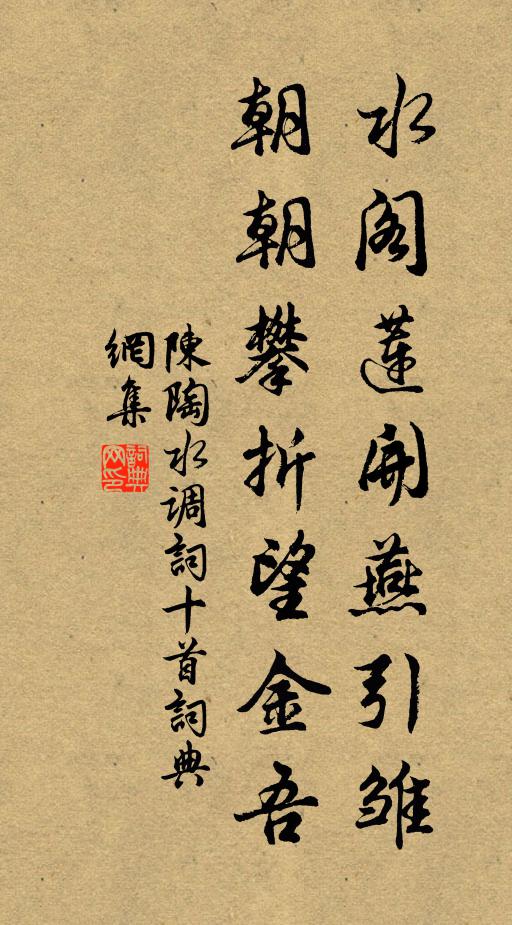 水阁蓮開燕引雏
朝朝攀折望金吾
陳陶水调詞十首詞典
網集
詞典
网印